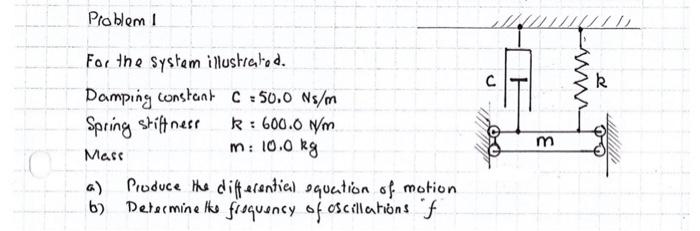 Problem 1
For the system illustrated.
Damping constant C = 50.0 Ns/m
Spring stiffness k : 600.0 N/m
Mass m: 10.0 kg
a) Produce the differential equation of motion
b) Determine the frequency of oscillations f
C
k
m